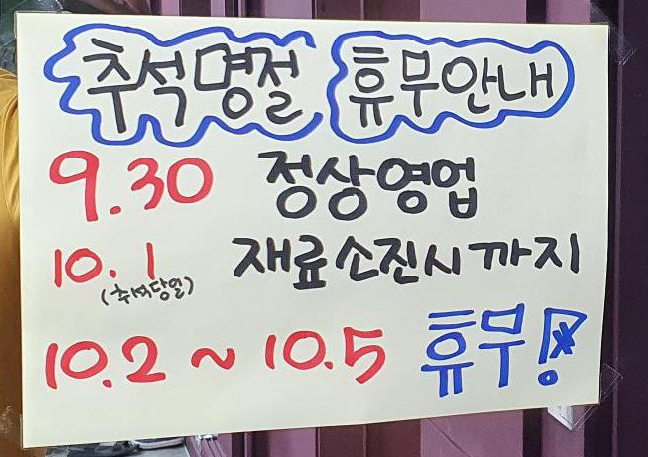 추석명절 휴무안내
9.30 정상영업
10.1 재료소진시까지
(추석당일)
10.2 ~ 10.5 휴무!